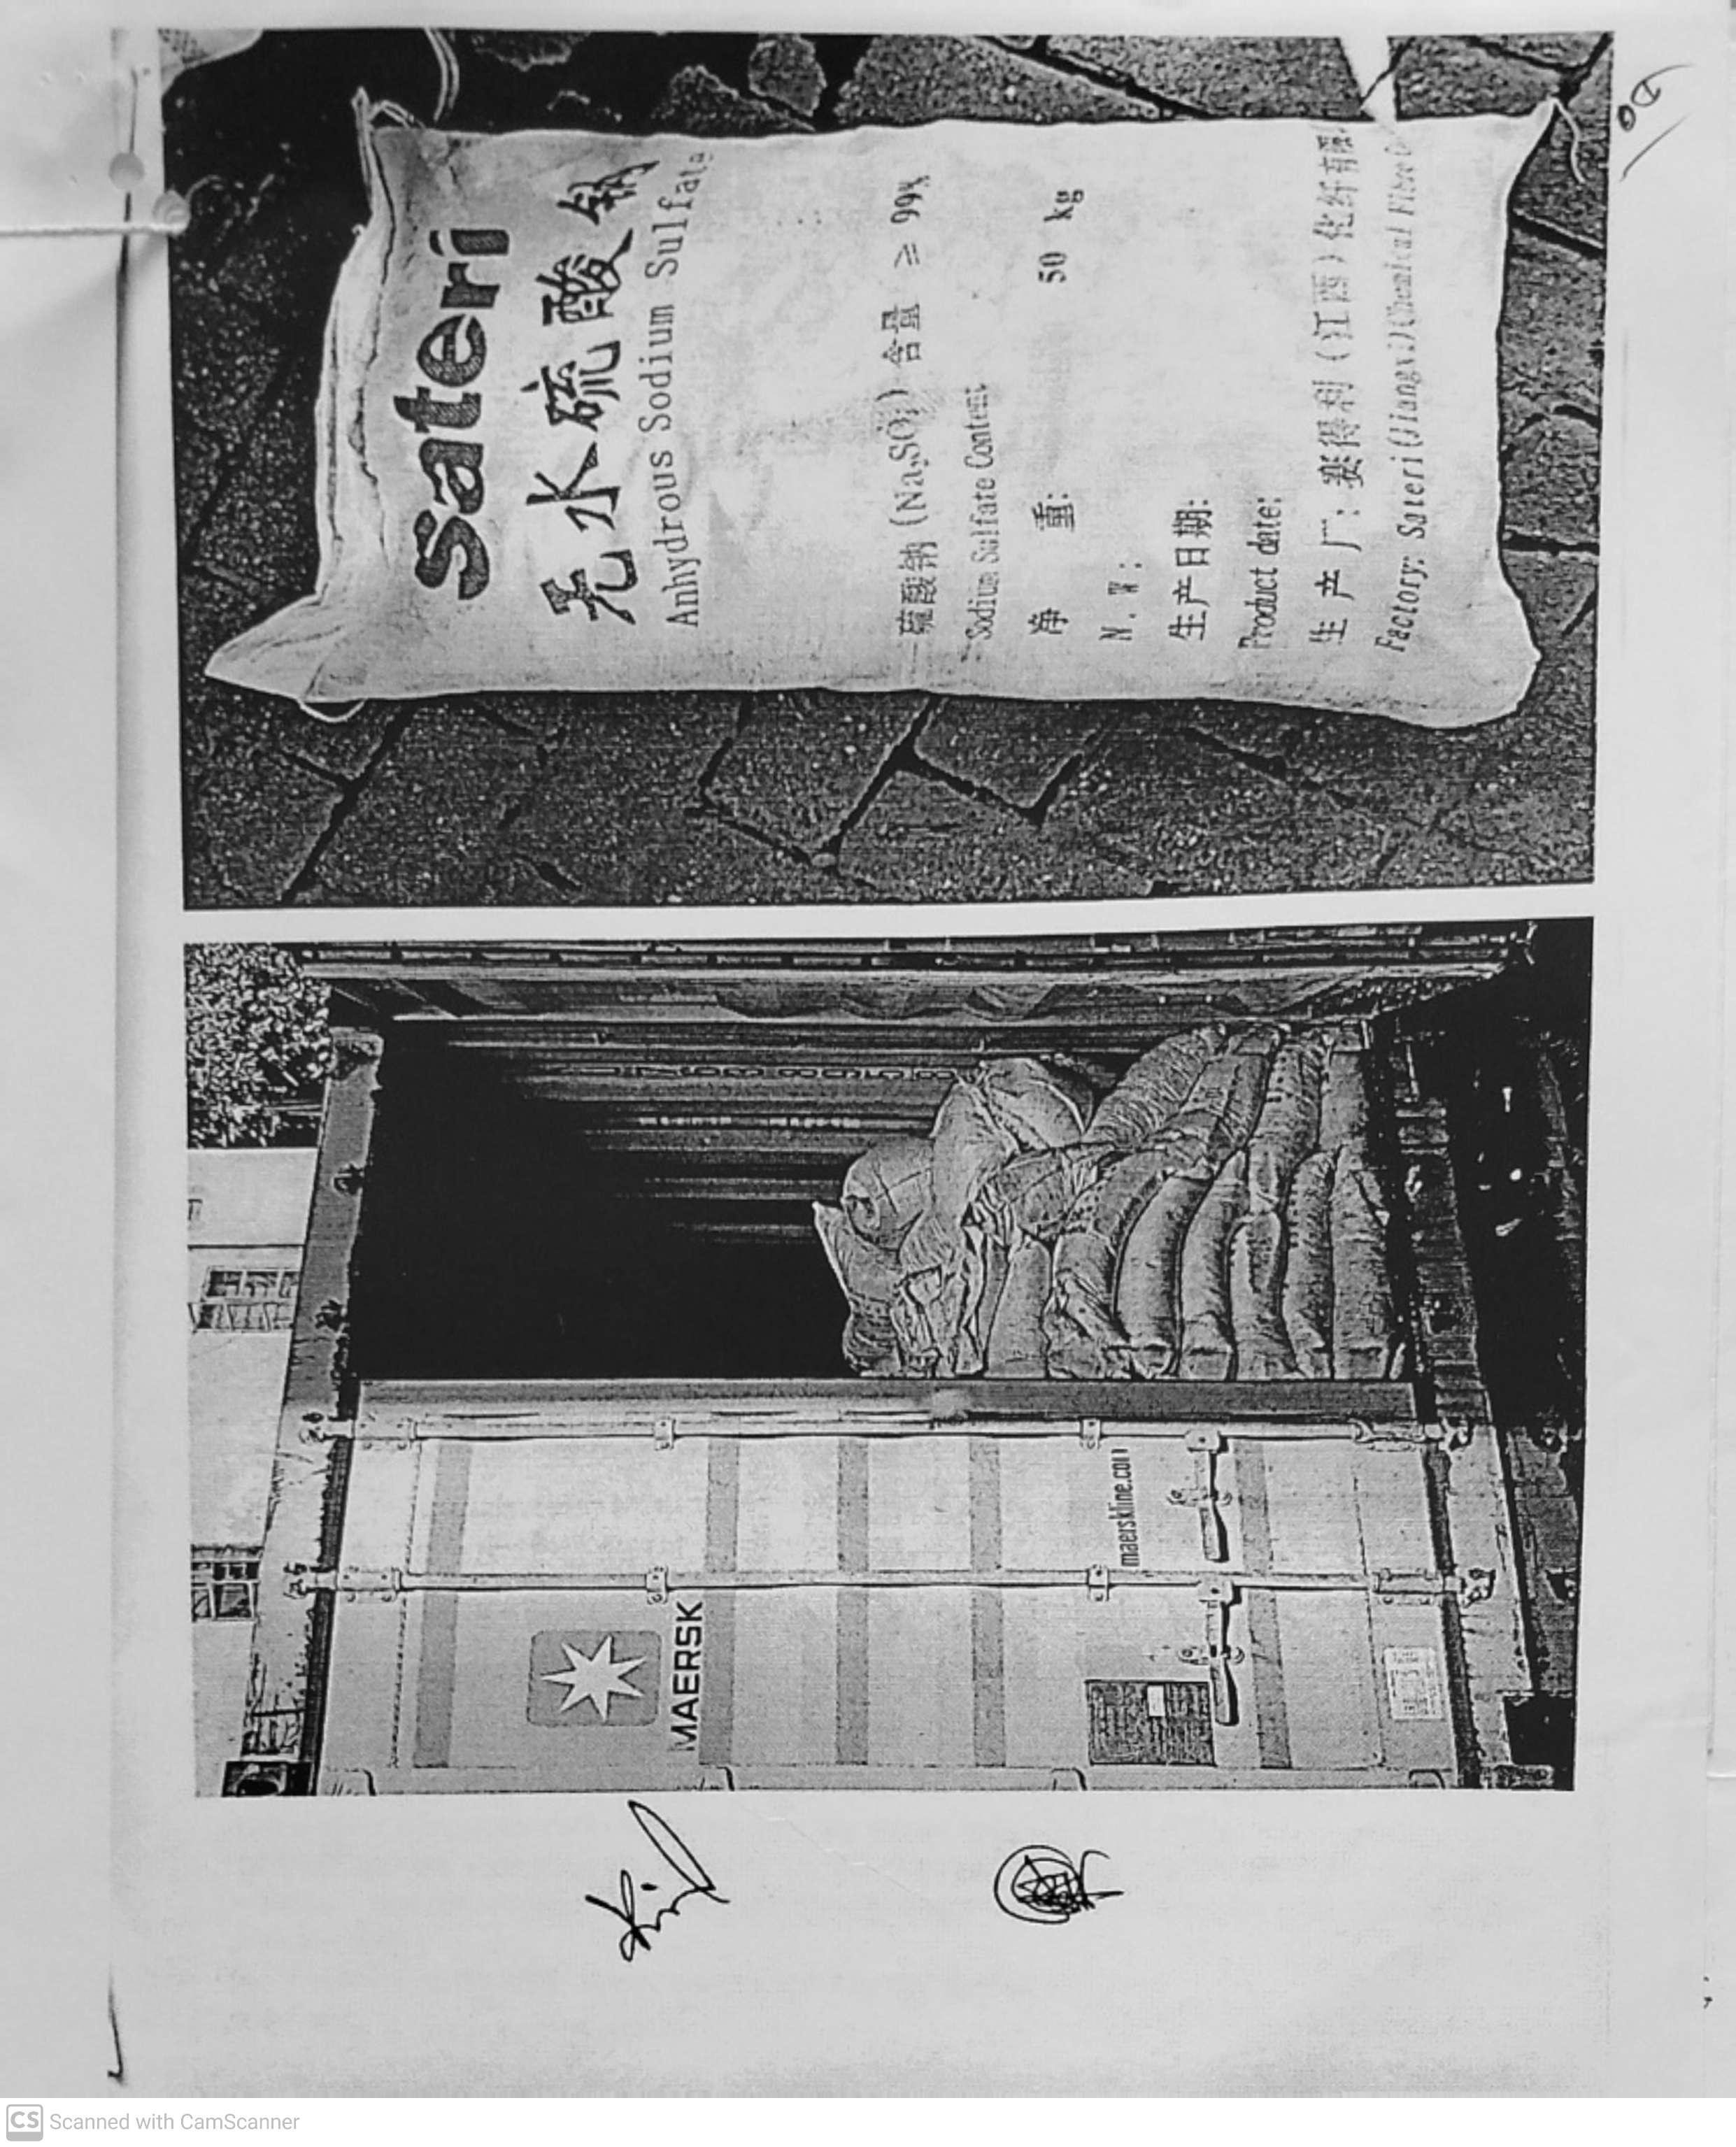 Sateri
无水硫酸钠
Anhydrous Sodium Sulfate
硫酸钠 (Na₂SO₄) 含量 ≥ 99%
Sodium Sulfate Content
净 重: 50 kg
N.W:
生产日期:
Product date:
生产厂: 赛得利(江西)化纤有限
Factory: Sateri(Jiangxi)Chemical Fibre
MAERSK
maerskline.com
CS Scanned with CamScanner